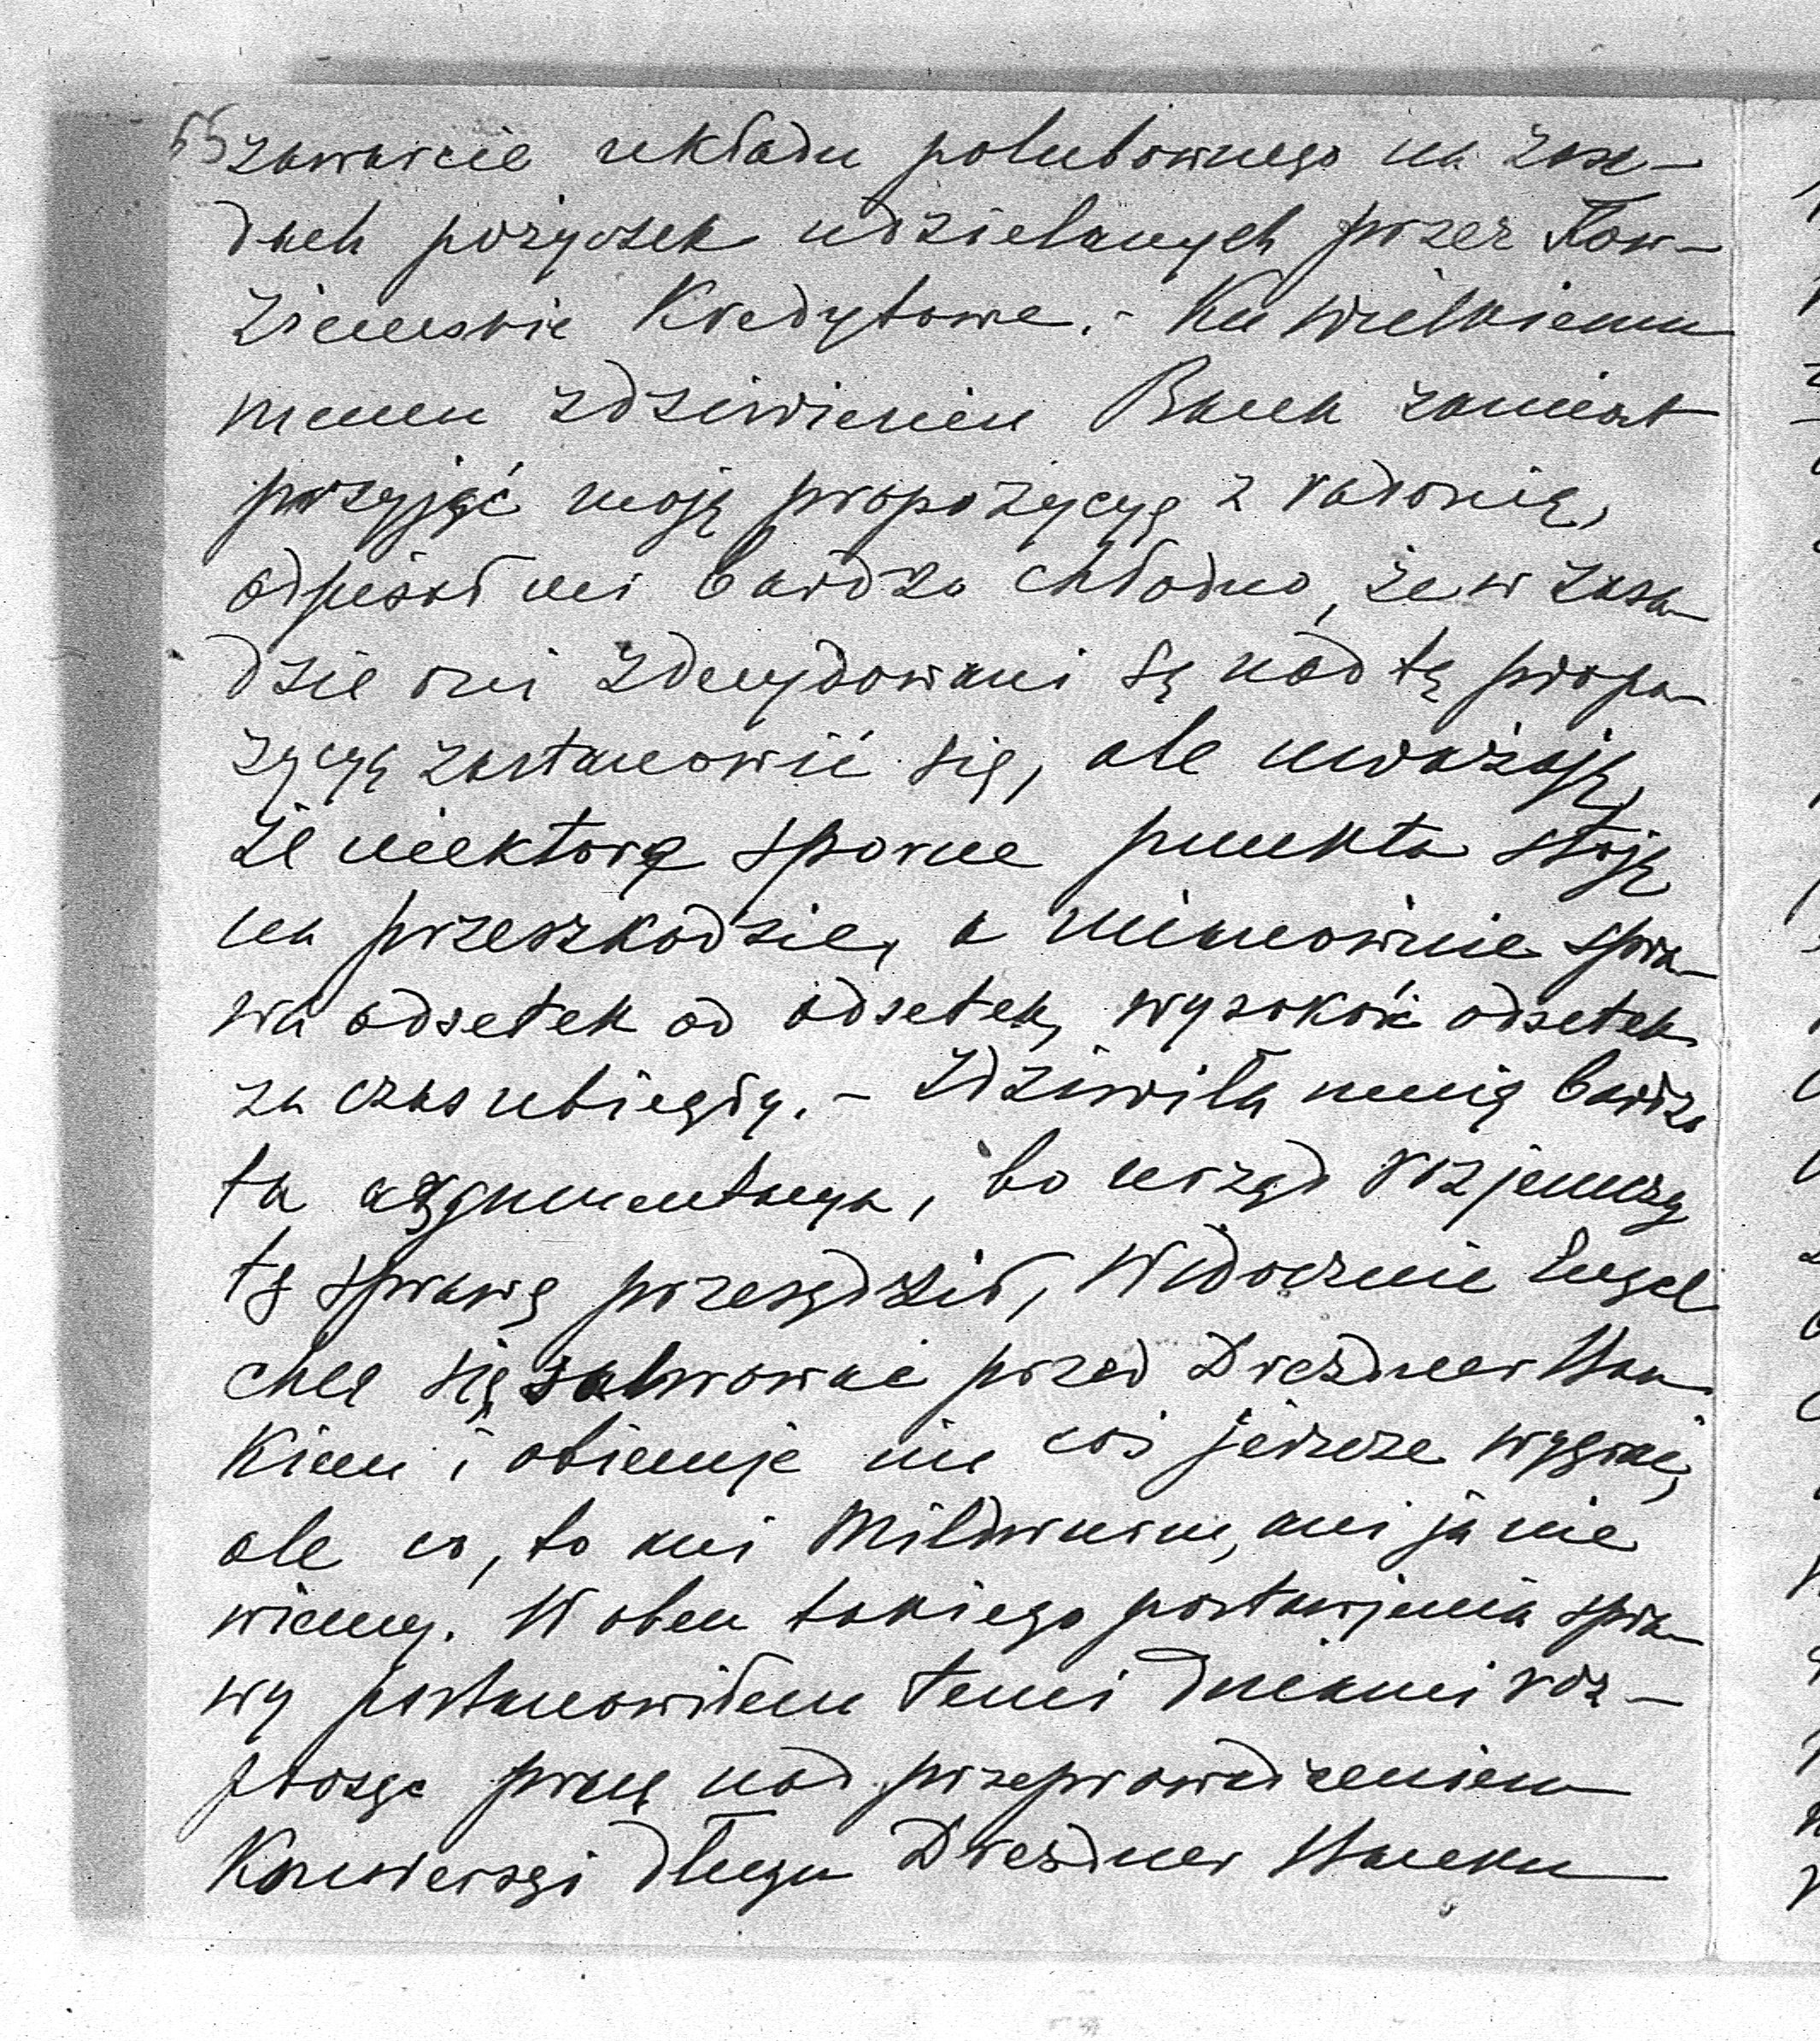 65 zawarcie układu polubownego na zasa-
dach pożyczek udzielanych przez Tow-
Ziemskie Kredytowe. - Ku wielkiemu
memu zdziwieniu Bank zamiast
przyjąć moją propozycyę z radością,
odpisał mi bardzo chłodno, że w zasa-
dzie oni zdecydowani są nad tą propo-
zycyą zastanowić się, ale uważają,
że niektóre sporne punkta stoją
na przeszkodzie, a mianowicie spra-
wa odsetek od odsetek, wysokość odsetek
za czas ubiegły. - Zdziwiła mnię bardzo
ta argumentacya, bo urząd rozjemczy
tę sprawę przesądził, Widocznie Engel
chce się salwować przed Dresdner Ban-
kiem i obiecuje mu coś jeszcze wygrać,
ale co, to ani Mildwurm, ani ja nie
wiemy. Wobec takiego postawienia spra-
wy postanowiłem temi dniami roz-
począć pracę nad przeprowadzeniem
Konwersyi długu Dresdner Banku